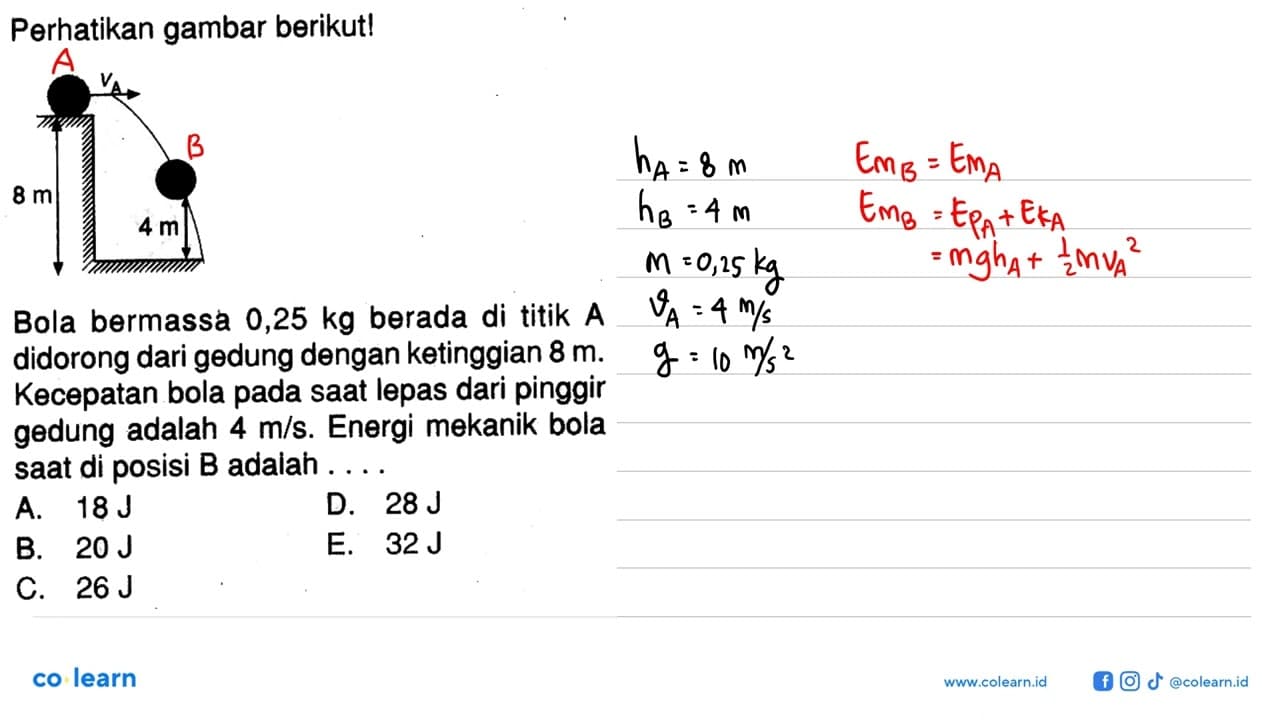 Perhatikan gambar berikut!
A
V_A
B
8 m
4 m
Bola bermassa 0,25 kg berada di titik A
didorong dari gedung dengan ketinggian 8 m.
Kecepatan bola pada saat lepas dari pinggir
gedung adalah 4 m/s. Energi mekanik bola
saat di posisi B adalah . . . .
A. 18 J
B. 20 J
C. 26 J
D. 28 J
E. 32 J
h_A = 8 m
h_B = 4 m
m = 0,25 kg
v_A = 4 m/s
g = 10 m/s²
Em_B = Em_A
Em_B = Ep_A + Ek_A
= mgh_A + ½ mv_A²
co learn
www.colearn.id
@colearn.id